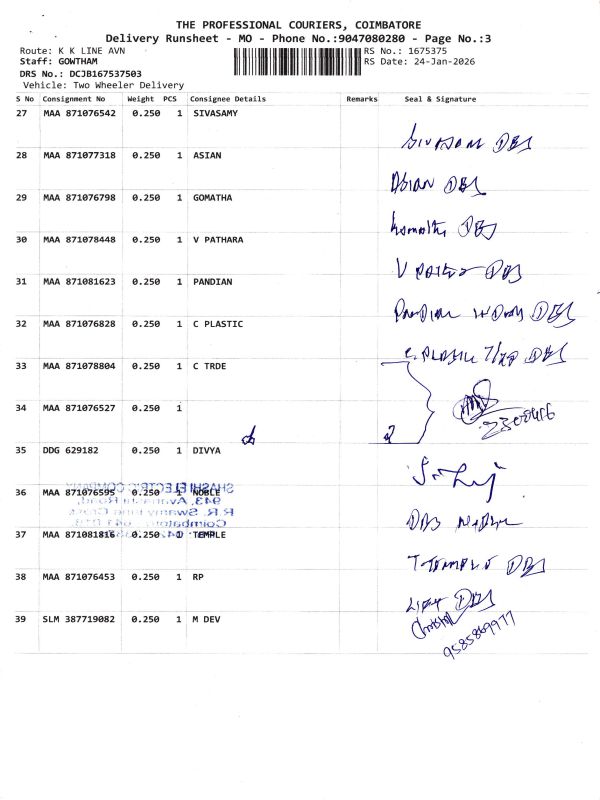 THE PROFESSIONAL COURIERS, COIMBATORE
Delivery Runsheet - MO - Phone No.:9047080280 - Page No.:3
Route: K K LINE AVN RS No.: 1675375
Staff: GOWTHAM RS Date: 24-Jan-2026
DRS No.: DCJB167537503
Vehicle: Two Wheeler Delivery
S No Consignment No Weight PCS Consignee Details Remarks Seal & Signature
27 MAA 871076542 0.250 1 SIVASAMY
28 MAA 871077318 0.250 1 ASIAN
Asian DBS
29 MAA 871076798 0.250 1 GOMATHA
DBS
30 MAA 871078448 0.250 1 V PATHARA
V DBS
31 MAA 871081623 0.250 1 PANDIAN
Pandian DBS
32 MAA 871076828 0.250 1 C PLASTIC
C. PLASTIC DBS
33 MAA 871078804 0.250 1 C TRDE
34 MAA 871076527 0.250 1
2
35 DDG 629182 0.250 1 DIVYA
SHASHI ELECTRIC COMPANY
36 MAA 871076595 0.250 1 NOBLE
943, Avanashi Road,
R.R. Swamy lane Cross
Coimbatore - 641 018
DBS
37 MAA 871081816 0.250 1 TEMPLE
DBS
38 MAA 871076453 0.250 1 RP
DBS
39 SLM 387719082 0.250 1 M DEV
9585869977